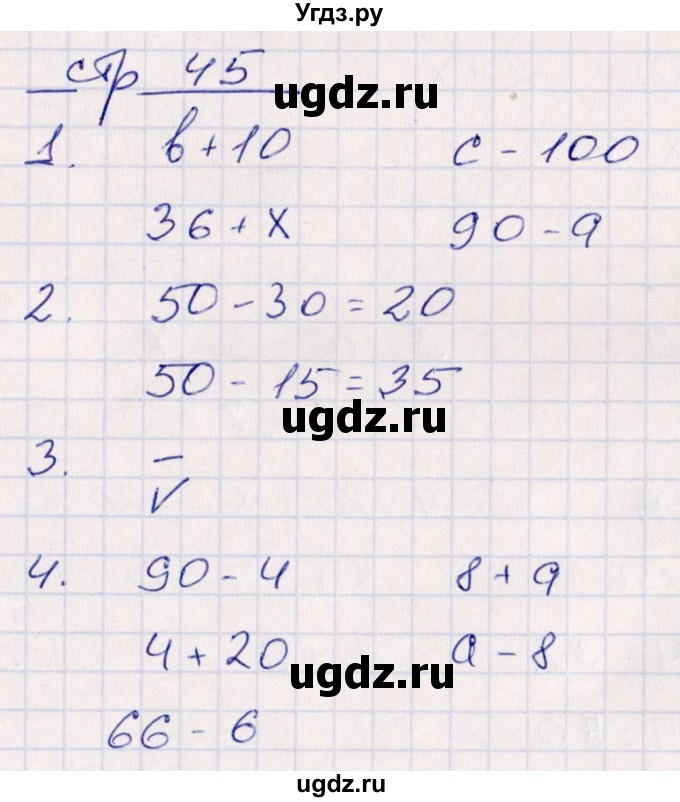 Угдз.ру
стр 45
ugdz.ru
1. b + 10 c - 100
36 + x 90 - 9
2. 50 - 30 = 20
50 - 15 = 35
ugdz.ru
3. —
✓
4. 90 - 4 8 + 9
4 + 20 a - 8
ugdz.ru
66 - 6
ugdz.ru